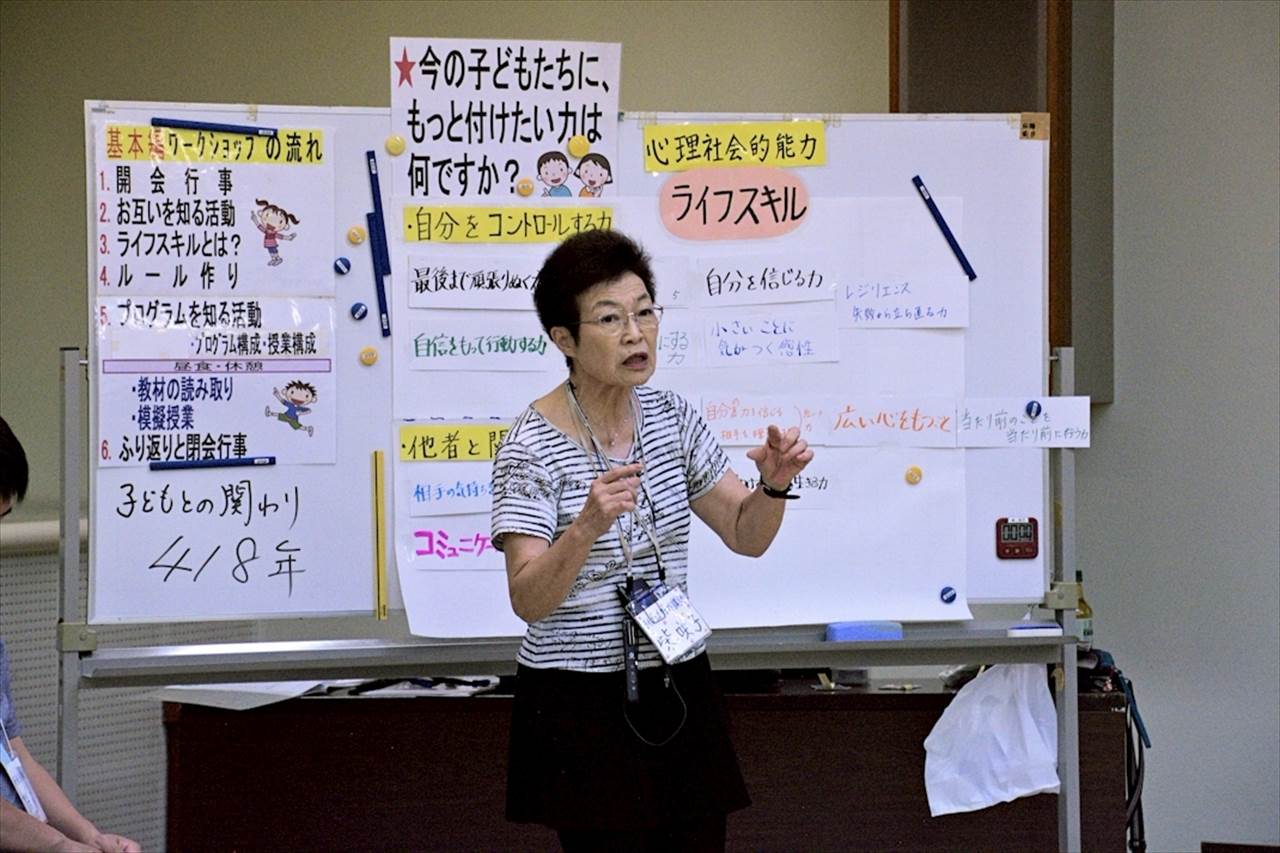 基本編 ワークショップの流れ
1. 開会行事
2. お互いを知る活動
3. ライフスキルとは?
4. ルール作り
5. プログラムを知る活動
・プログラム構成・授業構成
昼食・休憩
・教材の読み取り
・模擬授業
6. ふり返りと閉会行事
子どもとの関わり
418年
★今の子どもたちに、
もっと付けたい力は
何ですか?
・自分をコントロールする力
最後まで頑張りぬく
自信をもって行動する力
にする
力
・他者と関
相手の気持ち
コミュニケー
心理社会的能力
ライフスキル
自分を信じる力
レジリエンス
失敗から立ち直る力
小さいことに
気がつく感性
自分の力を信じる
広い心をもつ
当たり前のことを
当たり前に行う力